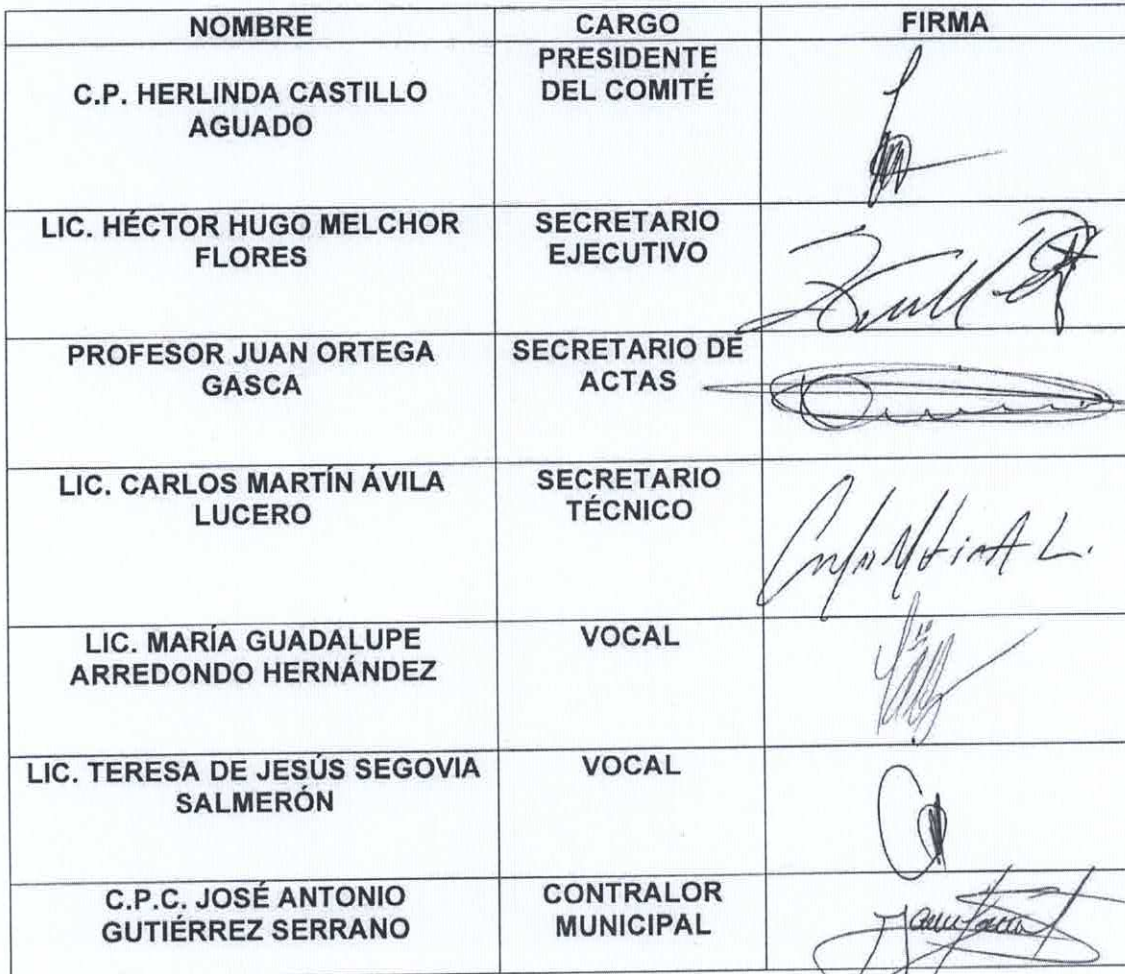 NOMBRE CARGO FIRMA
C.P. HERLINDA CASTILLO
AGUADO
PRESIDENTE
DEL COMITÉ
LIC. HÉCTOR HUGO MELCHOR
FLORES
SECRETARIO
EJECUTIVO
PROFESOR JUAN ORTEGA
GASCA
SECRETARIO DE
ACTAS
LIC. CARLOS MARTÍN ÁVILA
LUCERO
SECRETARIO
TÉCNICO
LIC. MARÍA GUADALUPE
ARREDONDO HERNÁNDEZ
VOCAL
LIC. TERESA DE JESÚS SEGOVIA
SALMERÓN
VOCAL
C.P.C. JOSÉ ANTONIO
GUTIÉRREZ SERRANO
CONTRALOR
MUNICIPAL